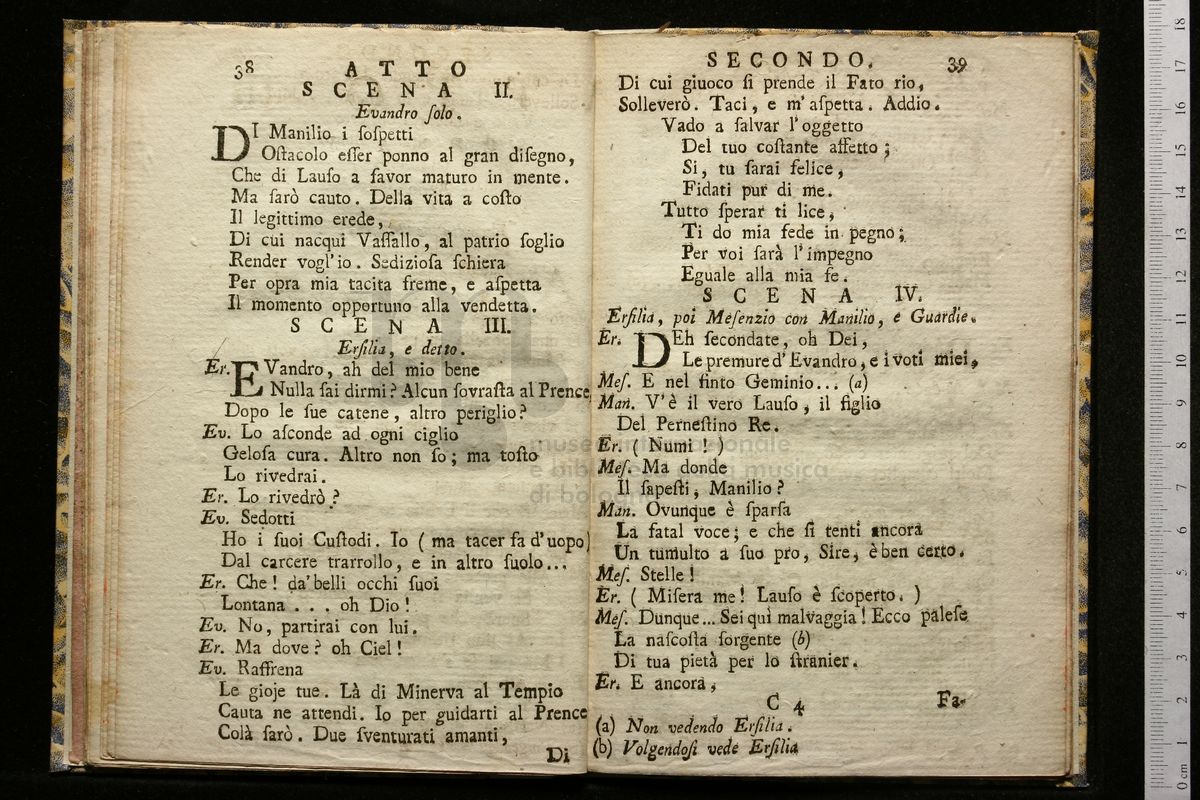 38 ATTO
SCENA II.
Evandro ſolo.
DI Manilio i ſoſpetti
Oſtacolo eſſer ponno al gran diſegno,
Che di Lauſo a favor maturo in mente.
Ma ſarò cauto. Della vita a coſto
Il legittimo erede,
Di cui nacqui Vaſſallo, al patrio ſoglio
Render vogl'io. Sedizioſa ſchiera
Per opra mia tacita freme, e aſpetta
Il momento opportuno alla vendetta.
SCENA III.
Erſilia, e detto.
Er. EVandro, ah del mio bene
Nulla ſai dirmi? Alcun ſovraſta al Prence
Dopo le ſue catene, altro periglio?
Ev. Lo aſconde ad ogni ciglio
Geloſa cura. Altro non ſo; ma toſto
Lo rivedrai.
Er. Lo rivedrò?
Ev. Sedotti
Ho i ſuoi Cuſtodi. Io (ma tacer fa d'uopo)
Dal carcere trarrollo, e in altro ſuolo...
Er. Che! da'belli occhi ſuoi
Lontana . . . oh Dio!
Ev. No, partirai con lui.
Er. Ma dove? oh Ciel!
Ev. Raffrena
Le gioje tue. Là di Minerva al Tempio
Cauta ne attendi. Io per guidarti al Prence
Colà ſarò. Due ſventurati amanti,
Di
SECONDO. 39
Di cui giuoco ſi prende il Fato rio,
Solleverò. Taci, e m'aſpetta. Addio.
Vado a ſalvar l'oggetto
Del tuo coſtante affetto;
Si, tu ſarai felice,
Fidati pur di me.
Tutto ſperar ti lice,
Ti do mia fede in pegno;
Per voi ſarà l'impegno
Eguale alla mia fe.
SCENA IV.
Erſilia, poi Meſenzio con Manilio, e Guardie.
Er. DEh ſecondate, oh Dei,
Le premure d'Evandro, e i voti miei,
Meſ. E nel finto Geminio... (a)
Man. V'è il vero Lauſo, il figlio
Del Perneſtino Re.
Er. (Numi!)
Meſ. Ma donde
Il ſapeſti, Manilio?
Man. Ovunque è ſparſa
La fatal voce; e che ſi tenti ancora
Un tumulto a ſuo pro, Sire, è ben certo.
Meſ. Stelle!
Er. (Miſera me! Lauſo è ſcoperto.)
Meſ. Dunque... Sei quì malvaggia! Ecco paleſe
La naſcoſta ſorgente (b)
Di tua pietà per lo ſtranier.
Er. E ancora,
C 4 Fa-
(a) Non vedendo Erſilia.
(b) Volgendoſi vede Erſilia
museo internazionale
e biblioteca della musica
di bologna
18 17 16 15 14 13 12 11 10 9 8 7 6 5 4 3 2 1 0 cm